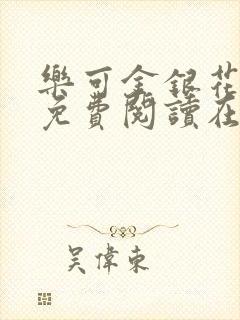 樂可金銀花
免費閱讀在
吳偉東